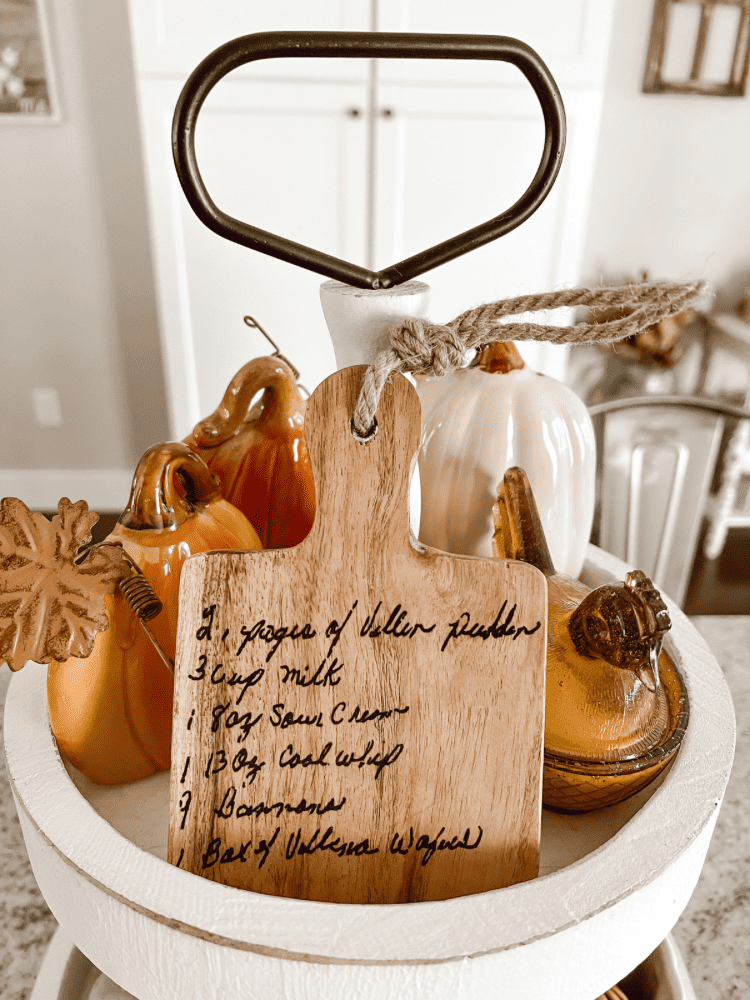 2, pages of Vellin pudden
3 Cup milk
1 8oz Sour Cream
1 13oz Cool whip
9 Bannons
1 Box of Vellena Wafers